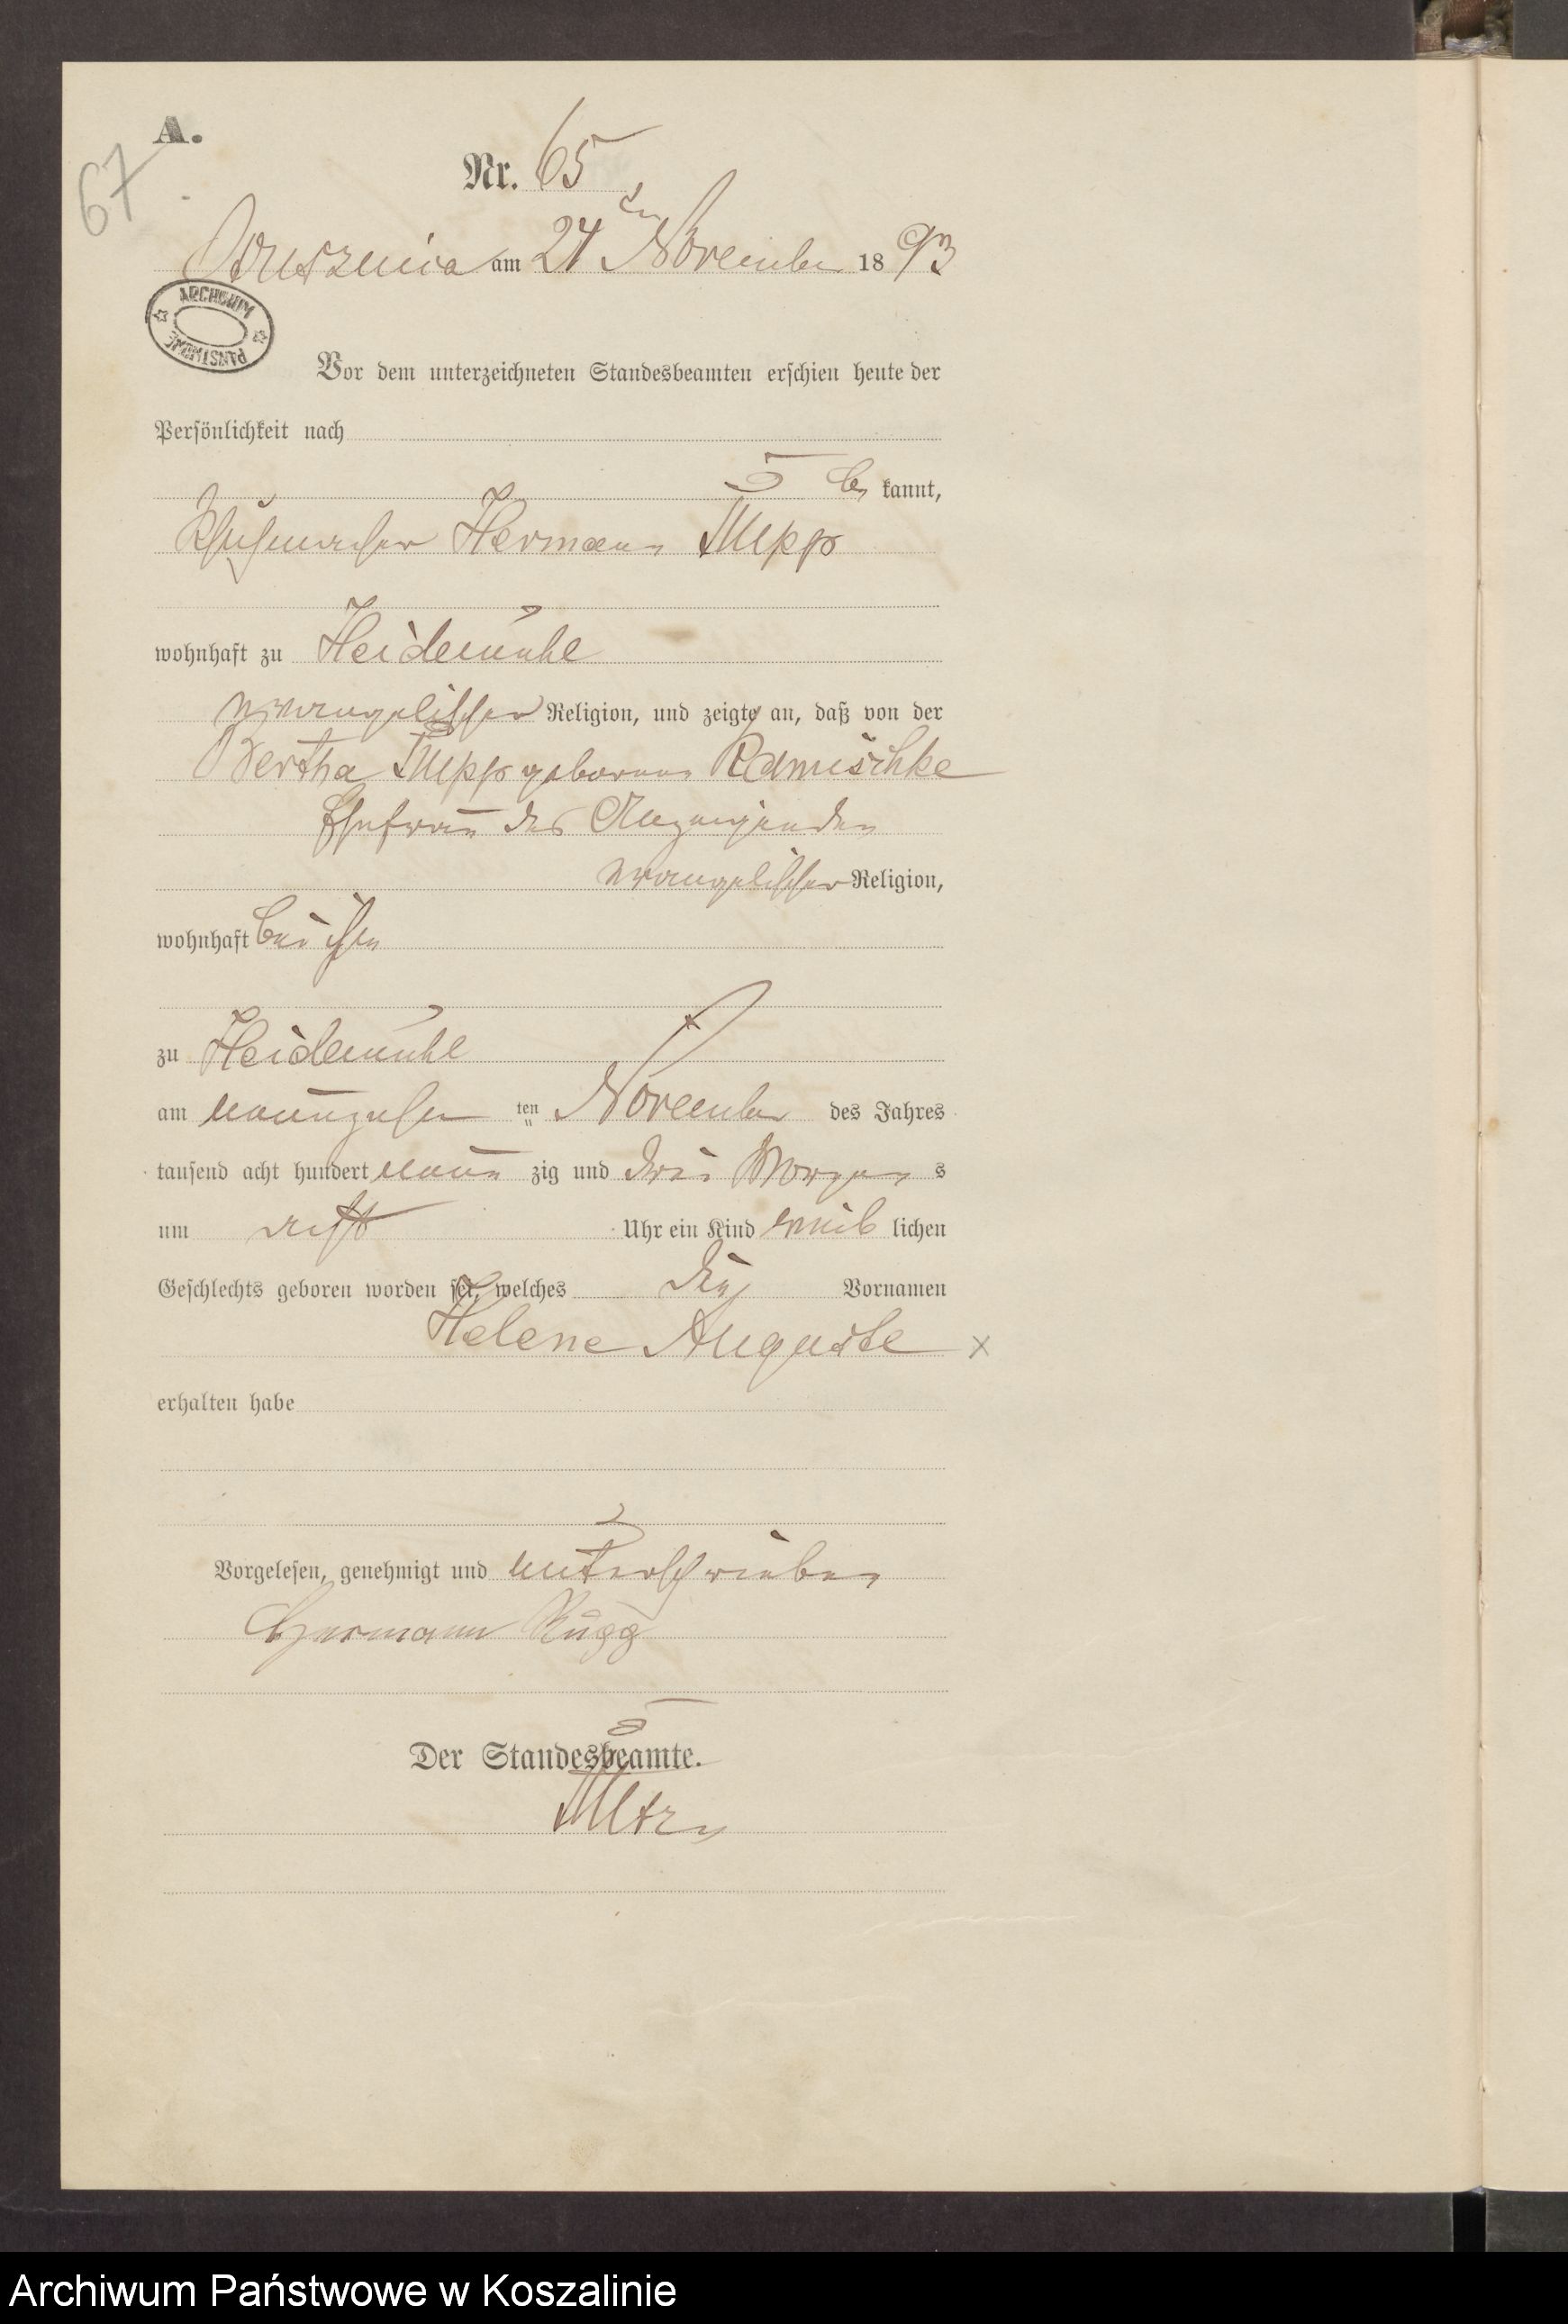 A.
67
Nr. 65
Bruszenica am 24ten November 1893
ARCHIWUM PAŃSTWOWE
Vor dem unterzeichneten Standesbeamten erschien heute der
Persönlichkeit nach
be kannt,
Schuhmacher Hermann
wohnhaft zu Heidemühl
evangelischer Religion, und zeigte an, daß von der
Bertha geborene Ramischke
Ehefrau des Anzeigenden
evangelischer Religion,
wohnhaft bei ihm
zu Heidemühl
am neunzehn ten November des Jahres
tausend acht hundert neun zig und drei Morgens
um acht Uhr ein Kind weib lichen
Geschlechts geboren worden sei, welches die Vornamen
Helene Auguste x
erhalten habe
Vorgelesen, genehmigt und unterschrieben
Hermann
Der Standesbeamte.
Archiwum Państwowe w Koszalinie